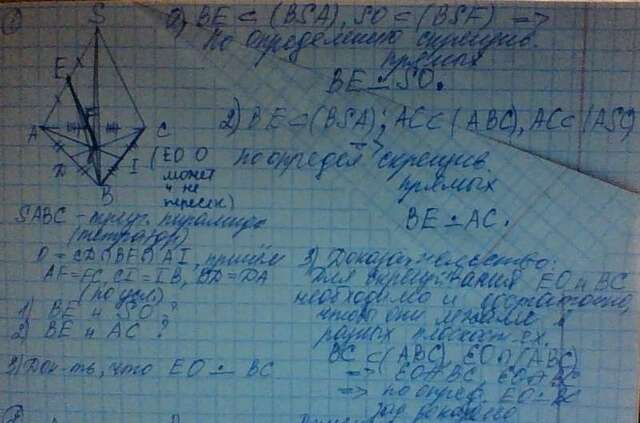 S
E
F
A
C
D
I
B
(EO O
может
и не
пересек)
SABC - треуг. пирамида
(тетраэдр)
O = CD ∩ BF ∩ AI, причём
AF = FC, CI = IB, BD = DA
(по усл)
1) BE и SO ?
2) BE и AC ?
3) Док-ть, что EO ∸ BC
1) BE ⊂ (BSA), SO ⊂ (BSF) =>
по определению скрещив.
прямых
BE ∸ SO.
2) BE ⊂ (BSA); AC ⊂ (ABC), AC ⊂ (ASC)
=> по определ скрещив.
прямых
BE ∸ AC.
3) Доказательство:
Для скрещивания EO и BC
необходимо и достаточно,
чтобы они лежали в
разных плоскост-ях.
BC ⊂ (ABC), EO ∩ (ABC)
=> по опред. EO ∸ BC